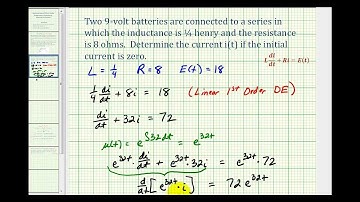 Two 9-volt batteries are connected to a series in
which the inductance is ¼ henry and the resistance
is 8 ohms. Determine the current i(t) if the initial
current is zero.
L di/dt + Ri = E(t)
L = 1/4 R = 8 E(t) = 18
1/4 di/dt + 8i = 18 (Linear 1st Order DE)
di/dt + 32i = 72
μ(t) = e^∫32dt = e^32t
e^32t · di/dt + e^32t · 32i = e^32t · 72
d/dt [e^32t · i] = 72 e^32t